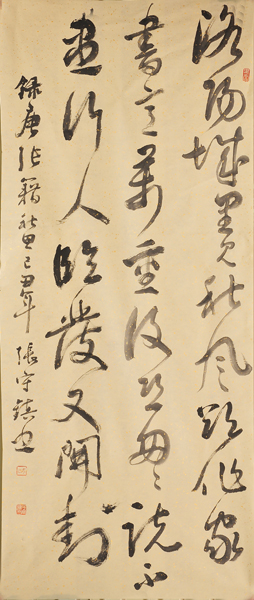 洛陽城里見秋風欲作家
書意萬重復恐匆匆說不
盡行人臨發又開封
錄唐張籍秋思己丑年 張守鎮書